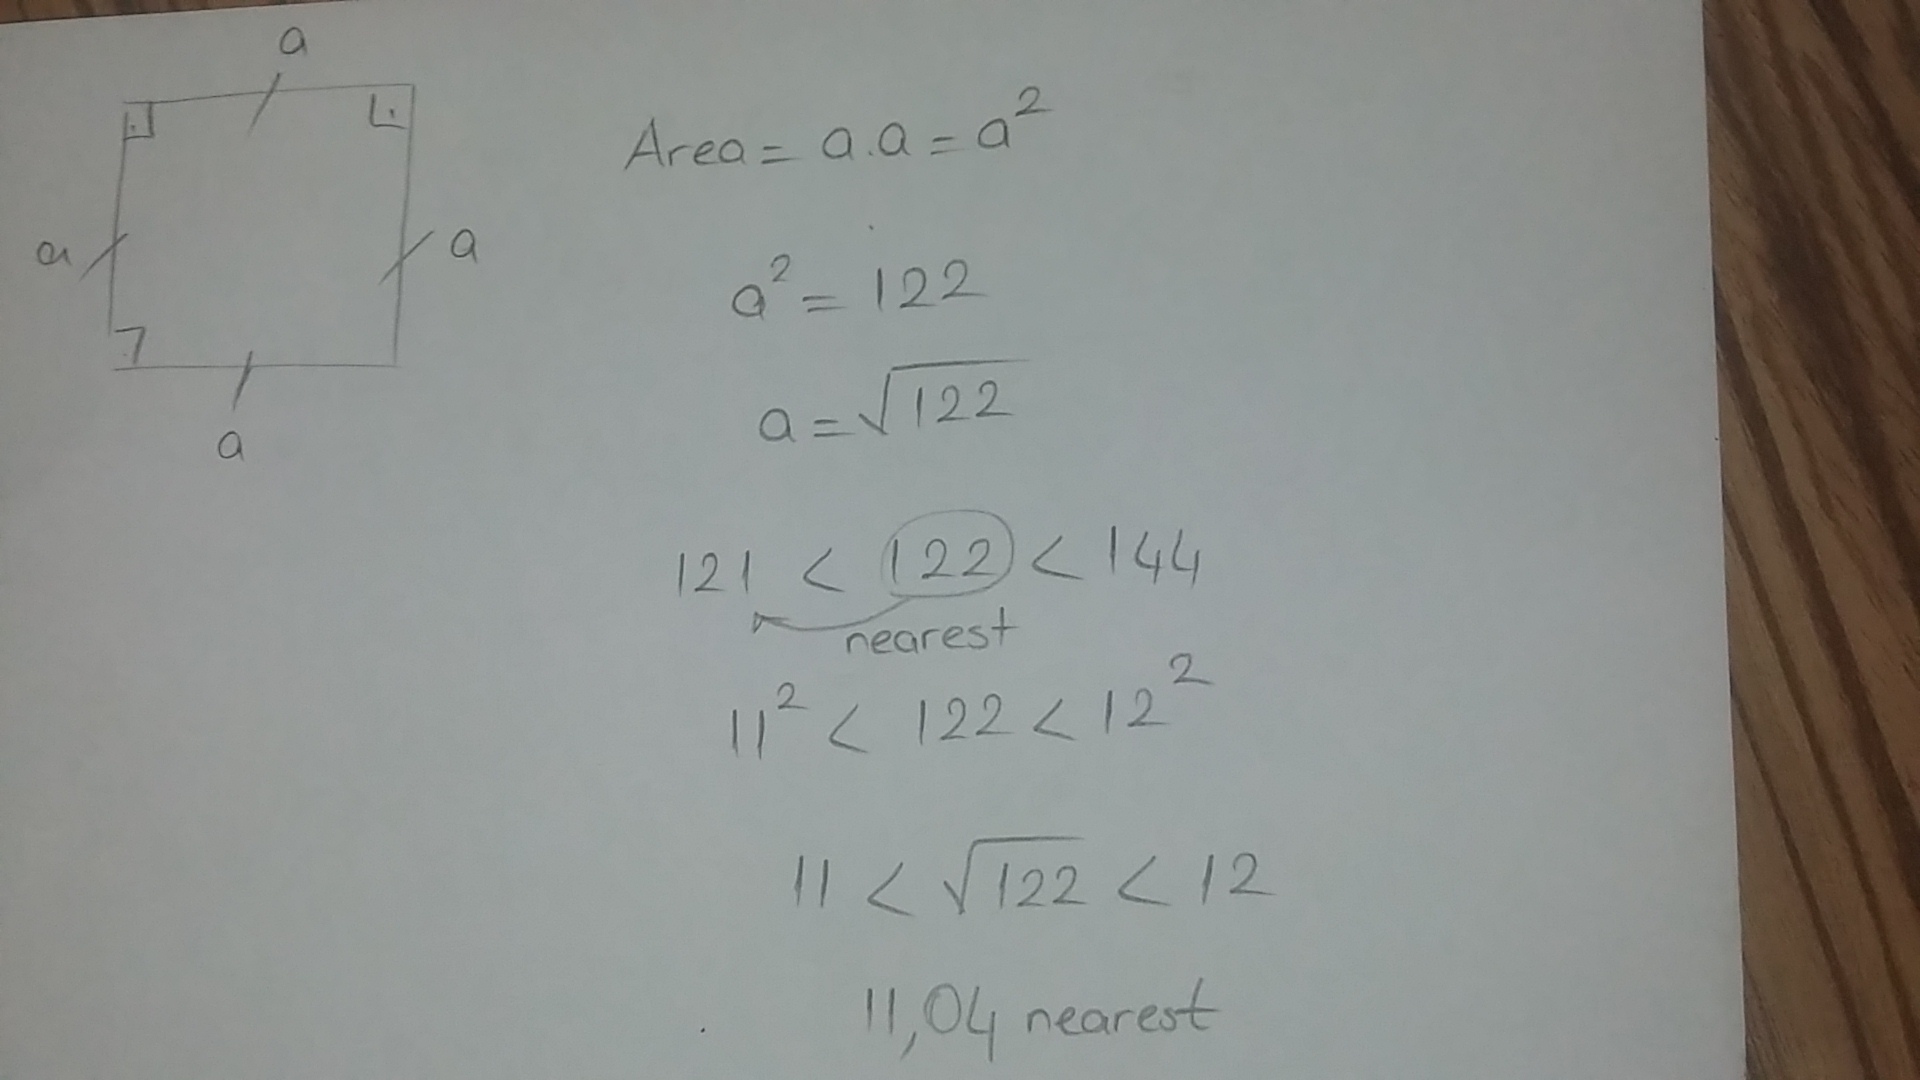 a
a
a
a
Area = a.a = a²
a² = 122
a = √122
121 < 122 < 144
nearest
11² < 122 < 12²
11 < √122 < 12
11,04 nearest